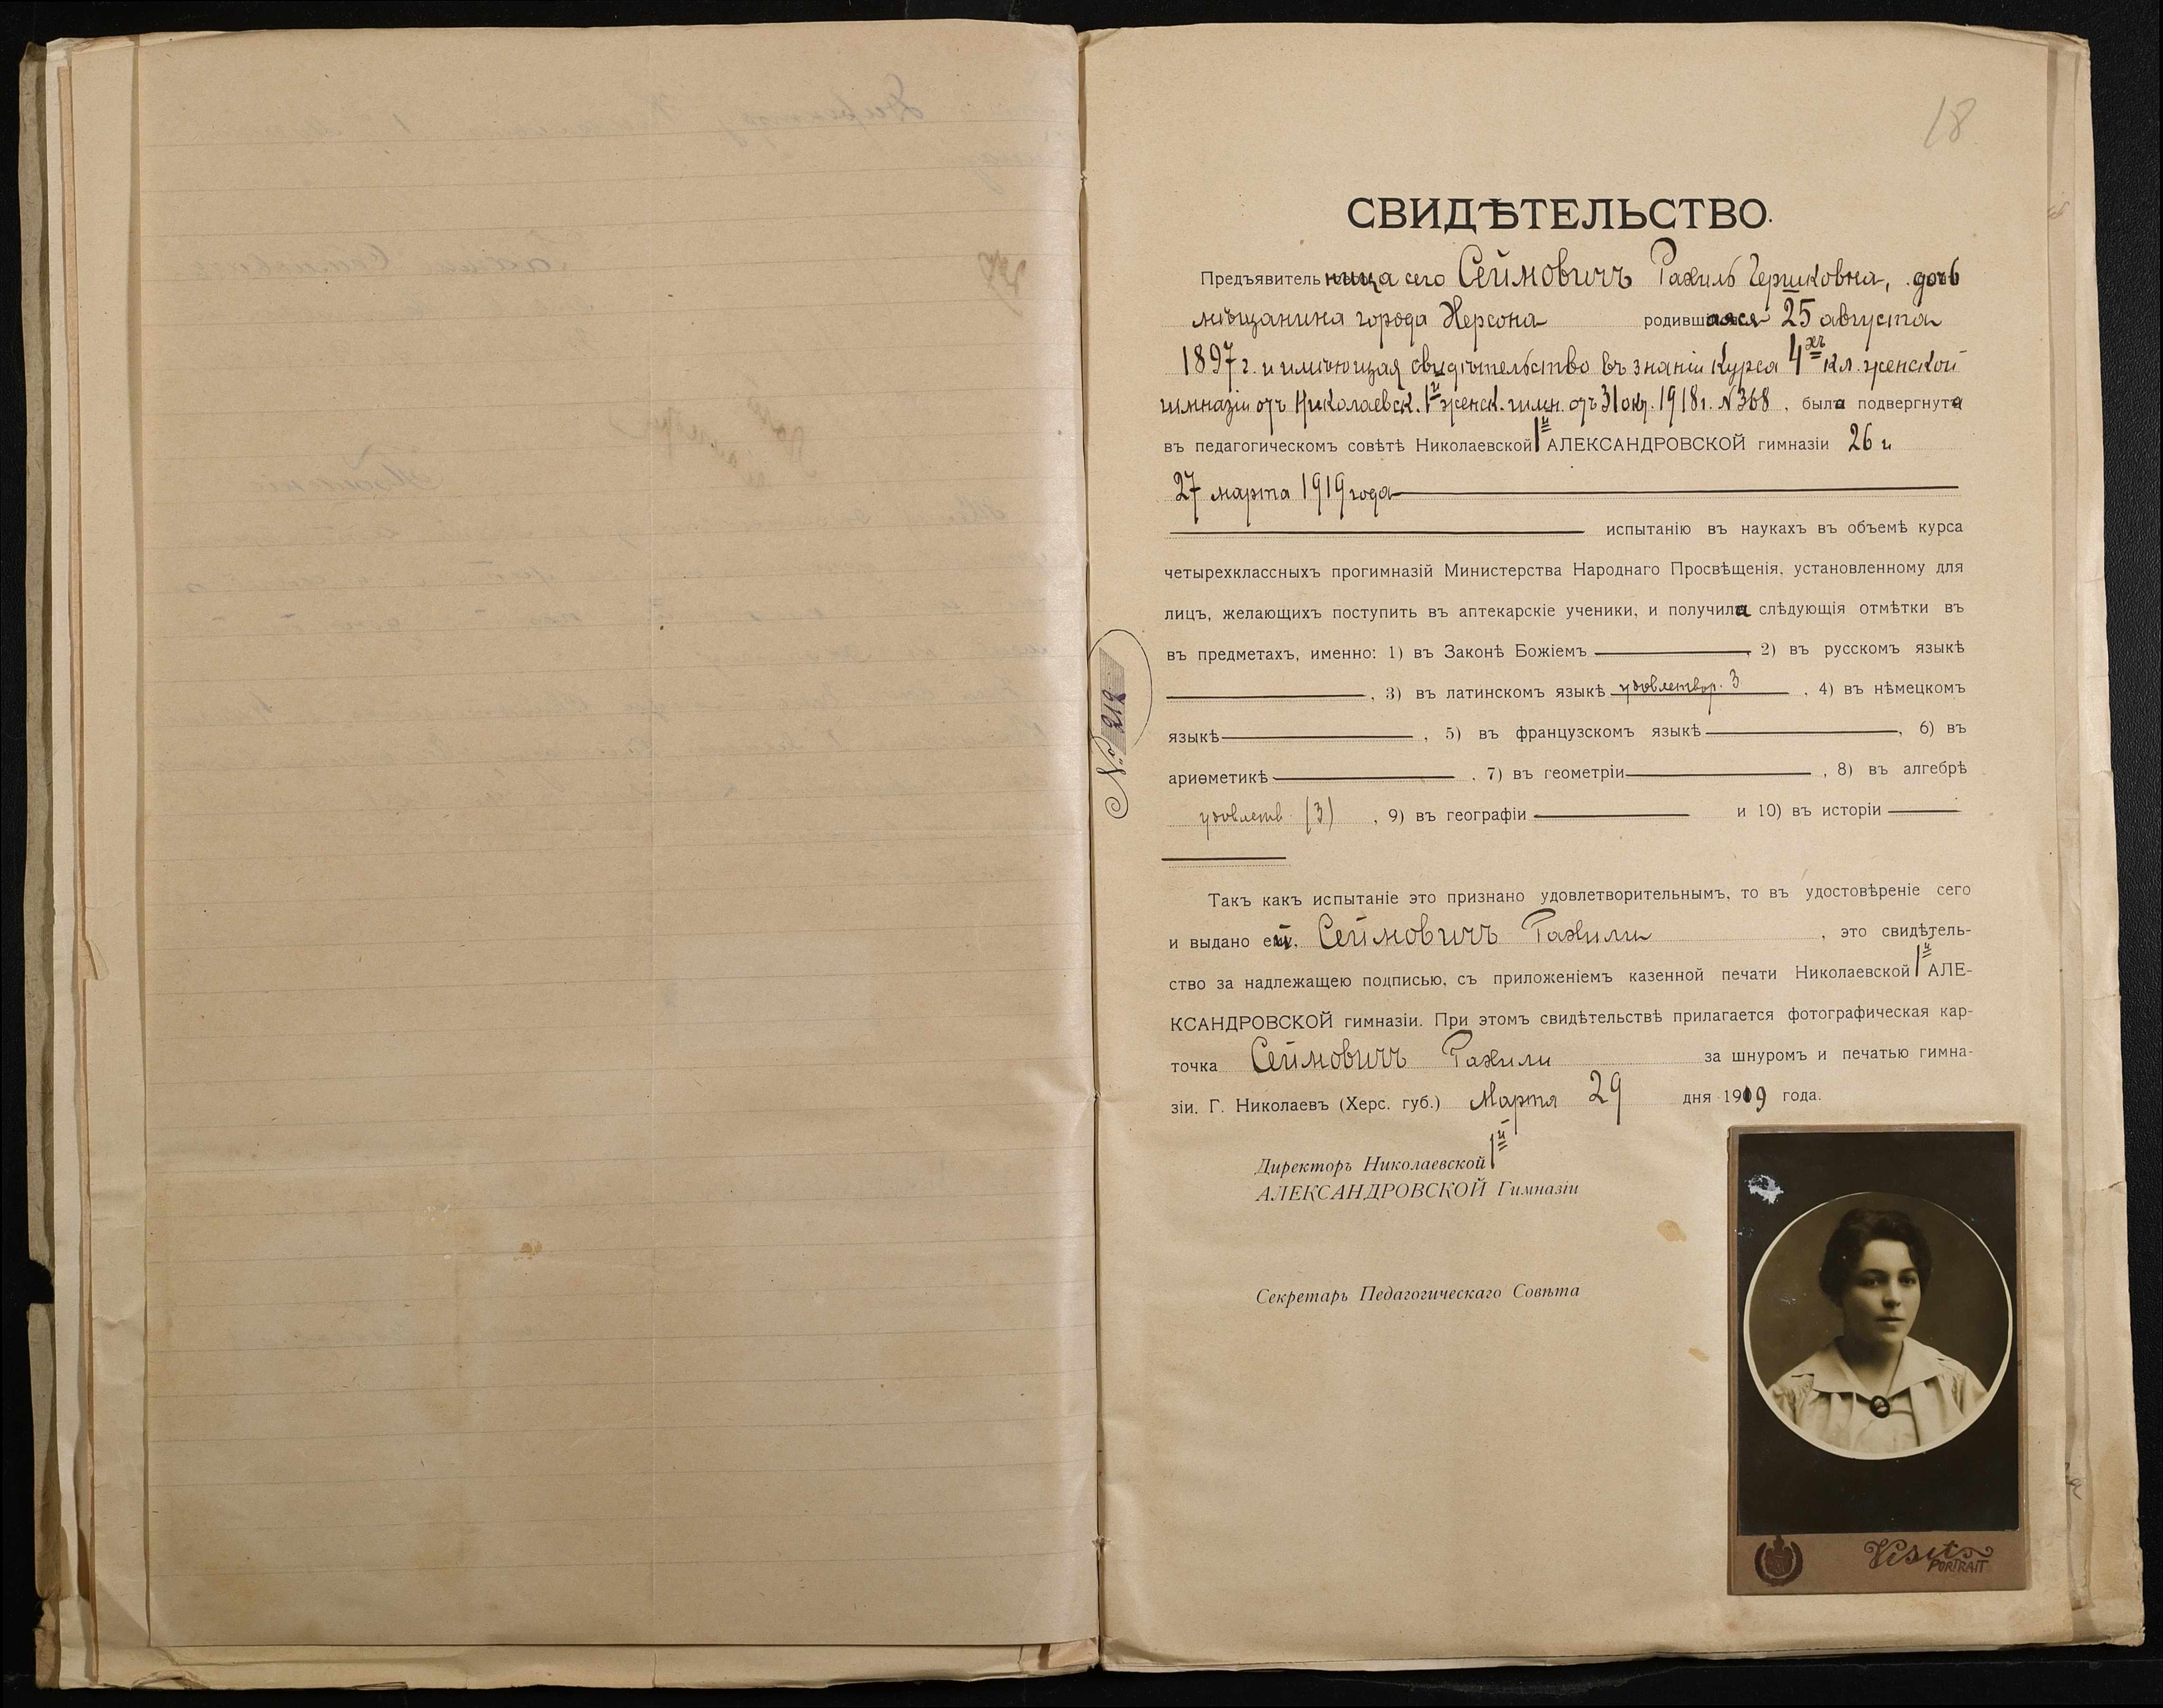 18
СВИДѢТЕЛЬСТВО.
Предъявительница сего Сеймовичъ Рахиль Гершковна, дочь
мѣщанина города Херсона родившаяся 25 августа
1897 г. и имѣющая свидѣтельство въ знаніи курса 4хъ кл. женской
гимназіи отъ Николаевск. 1й женск. гимн. отъ 31 окт. 1918 г. № 368, была подвергнута
въ педагогическомъ совѣтѣ Николаевской 1й АЛЕКСАНДРОВСКОЙ гимназіи 26 и
27 марта 1919 года
испытанію въ наукахъ въ объемѣ курса
четырехклассныхъ прогимназій Министерства Народнаго Просвѣщенія, установленному для
лицъ, желающихъ поступить въ аптекарскіе ученики, и получила слѣдующія отмѣтки въ
въ предметахъ, именно: 1) въ Законѣ Божіемъ , 2) въ русскомъ языкѣ
, 3) въ латинскомъ языкѣ удовлетвор. 3 , 4) въ нѣмецкомъ
языкѣ , 5) въ французскомъ языкѣ , 6) въ
ариѳметикѣ , 7) въ геометріи , 8) въ алгебрѣ
удовлетв. (3) , 9) въ географіи и 10) въ исторіи
№ 212
Такъ какъ испытаніе это признано удовлетворительнымъ, то въ удостовѣреніе сего
и выдано ей, Сеймовичъ Рахили , это свидѣтель-
ство за надлежащею подписью, съ приложеніемъ казенной печати Николаевской 1й АЛЕ-
КСАНДРОВСКОЙ гимназіи. При этомъ свидѣтельствѣ прилагается фотографическая кар-
точка Сеймовичъ Рахили за шнуромъ и печатью гимна-
зіи. Г. Николаевъ (Херс. губ.) Марта 29 дня 1919 года.
Директоръ Николаевской 1й
АЛЕКСАНДРОВСКОЙ Гимназіи
Секретарь Педагогическаго Совѣта
Visit
PORTRAIT